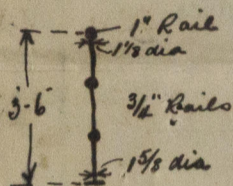 1" Rail
1 1/8 dia
3'-6"
3/4" Rails
"
1 5/8 dia